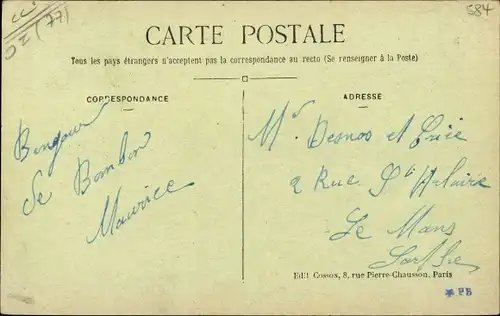 584
(77)
CARTE POSTALE
Tous les pays étrangers n'acceptent pas la correspondance au recto (Se renseigner à la Poste)
CORRESPONDANCE
ADRESSE
Bonjour
de Bombon
Maurice
Mr. Desnos et
2 Rue St Hilaire
Le Mans
Sarthe
Edit Cosson, 8, rue Pierre-Chausson, Paris
PB